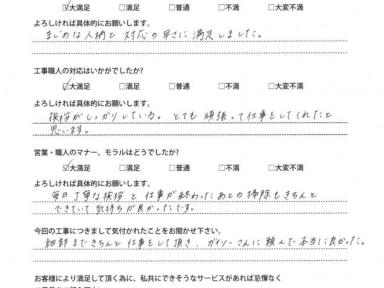 ☑大満足 □満足 □普通 □不満 □大変不満
よろしければ具体的にお願いします。
まじめな人柄と対応の早さに満足しました。
工事職人の対応はいかがでしたか?
☑大満足 □満足 □普通 □不満 □大変不満
よろしければ具体的にお願いします。
挨拶がしっかりしている。とても頑張って仕事をしてくれたと
思います。
営業・職人のマナー、モラルはどうでしたか?
☑大満足 □満足 □普通 □不満 □大変不満
よろしければ具体的にお願いします。
毎日丁寧な挨拶と仕事が終わったあとの掃除もきちんと
できていて気持ちが良かったです。
今回の工事につきまして気付かれたことをお聞かせ下さい。
細部まできちんと仕事をして頂き、ガイソーさんに頼んで本当に良かった。
お客様により満足して頂く為に、私共にできそうなサービスがあれば忌憚なく